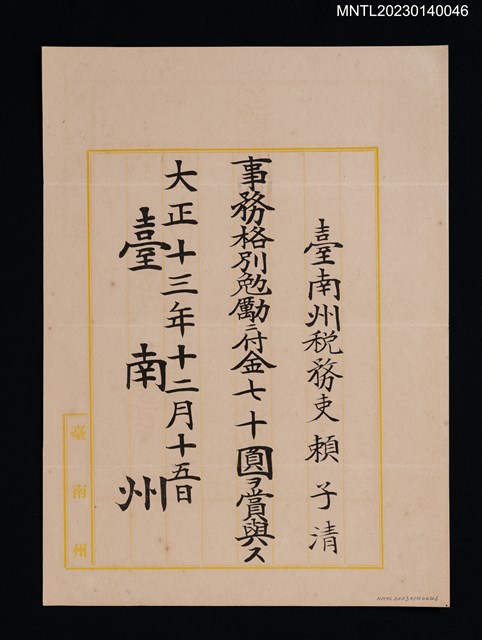 MNTL20230140046
臺南州税務吏 賴子清
事務格別勉勵ニ付金七十圓ヲ賞與ス
大正十三年十二月十五日
臺南州
臺南州
MNTL20230140046